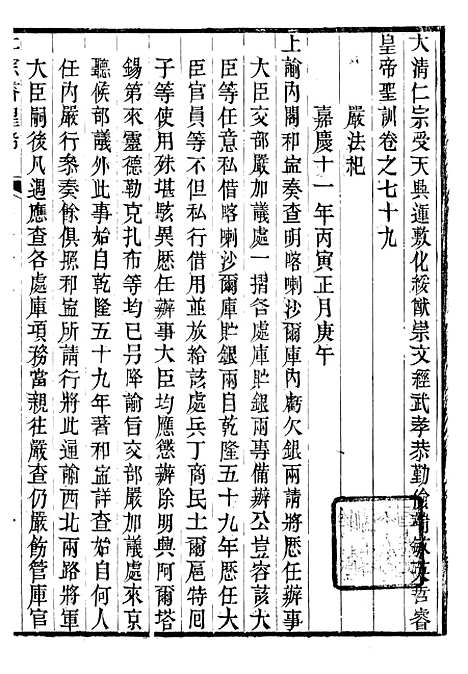 大清仁宗受天興運敷化綏猷崇文經武孝恭勤儉端敏英哲睿
皇帝聖訓卷之七十九
嚴法紀
嘉慶十一年丙寅正月庚午
上諭內閣和寍奏查明喀喇沙爾庫內虧欠銀兩請將歷任辦事
大臣交部嚴加議處一摺各處庫貯銀兩專備辦公豈容該大
臣等任意私借喀喇沙爾庫貯銀兩自乾隆五十九年歷任大
臣官員等不但私行借用並放給該處兵丁商民土爾扈特回
子等使用殊堪駭異歷任辦事大臣均應懲辦除明興阿爾塔
錫第來靈德勒克扎布等均已另降諭旨交部嚴加議處來京
聽候部議外此事始自乾隆五十九年著和寍詳查始自何人
任內嚴行叅奏餘俱照和寍所請行將此通諭西北兩路將軍
大臣嗣後凡遇應查各處庫項務當親往嚴查仍嚴飭管庫官